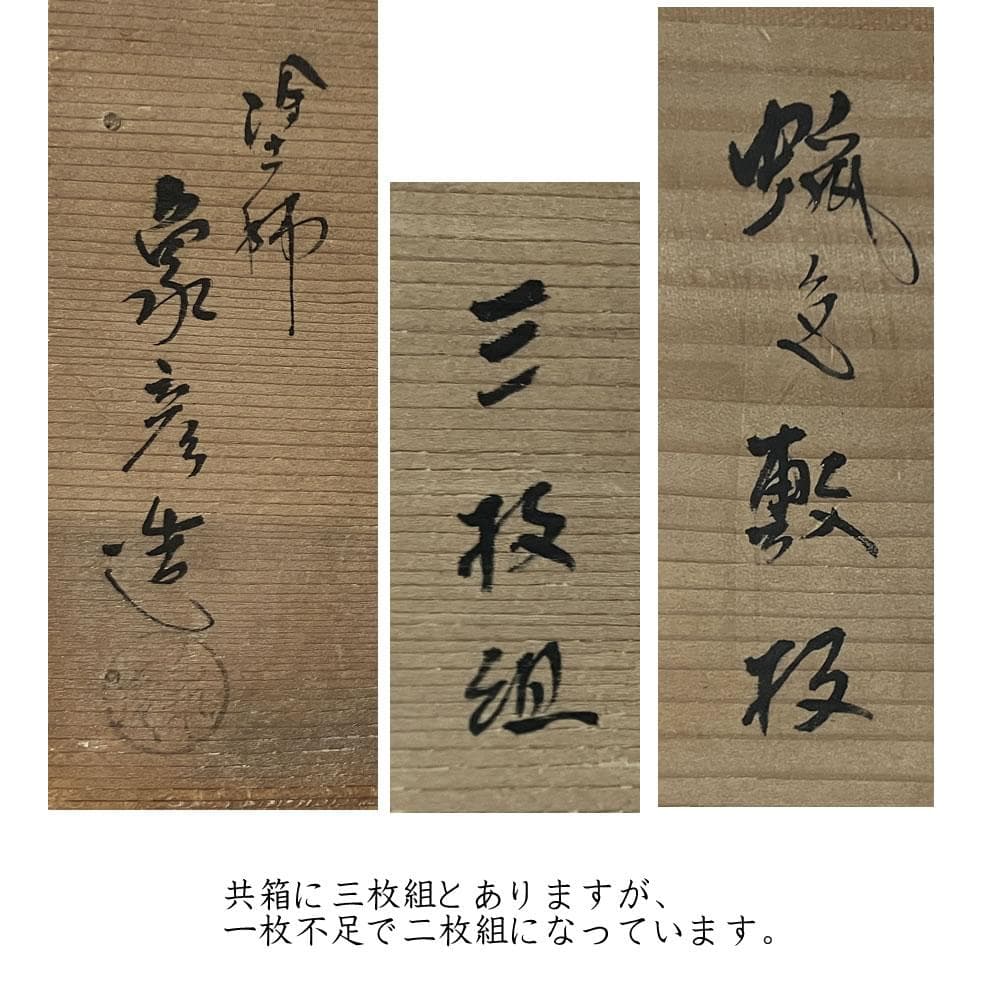 蝋色敷板
三枚組
塗師
象彦造
共箱に三枚組とありますが、
一枚不足で二枚組になっています。